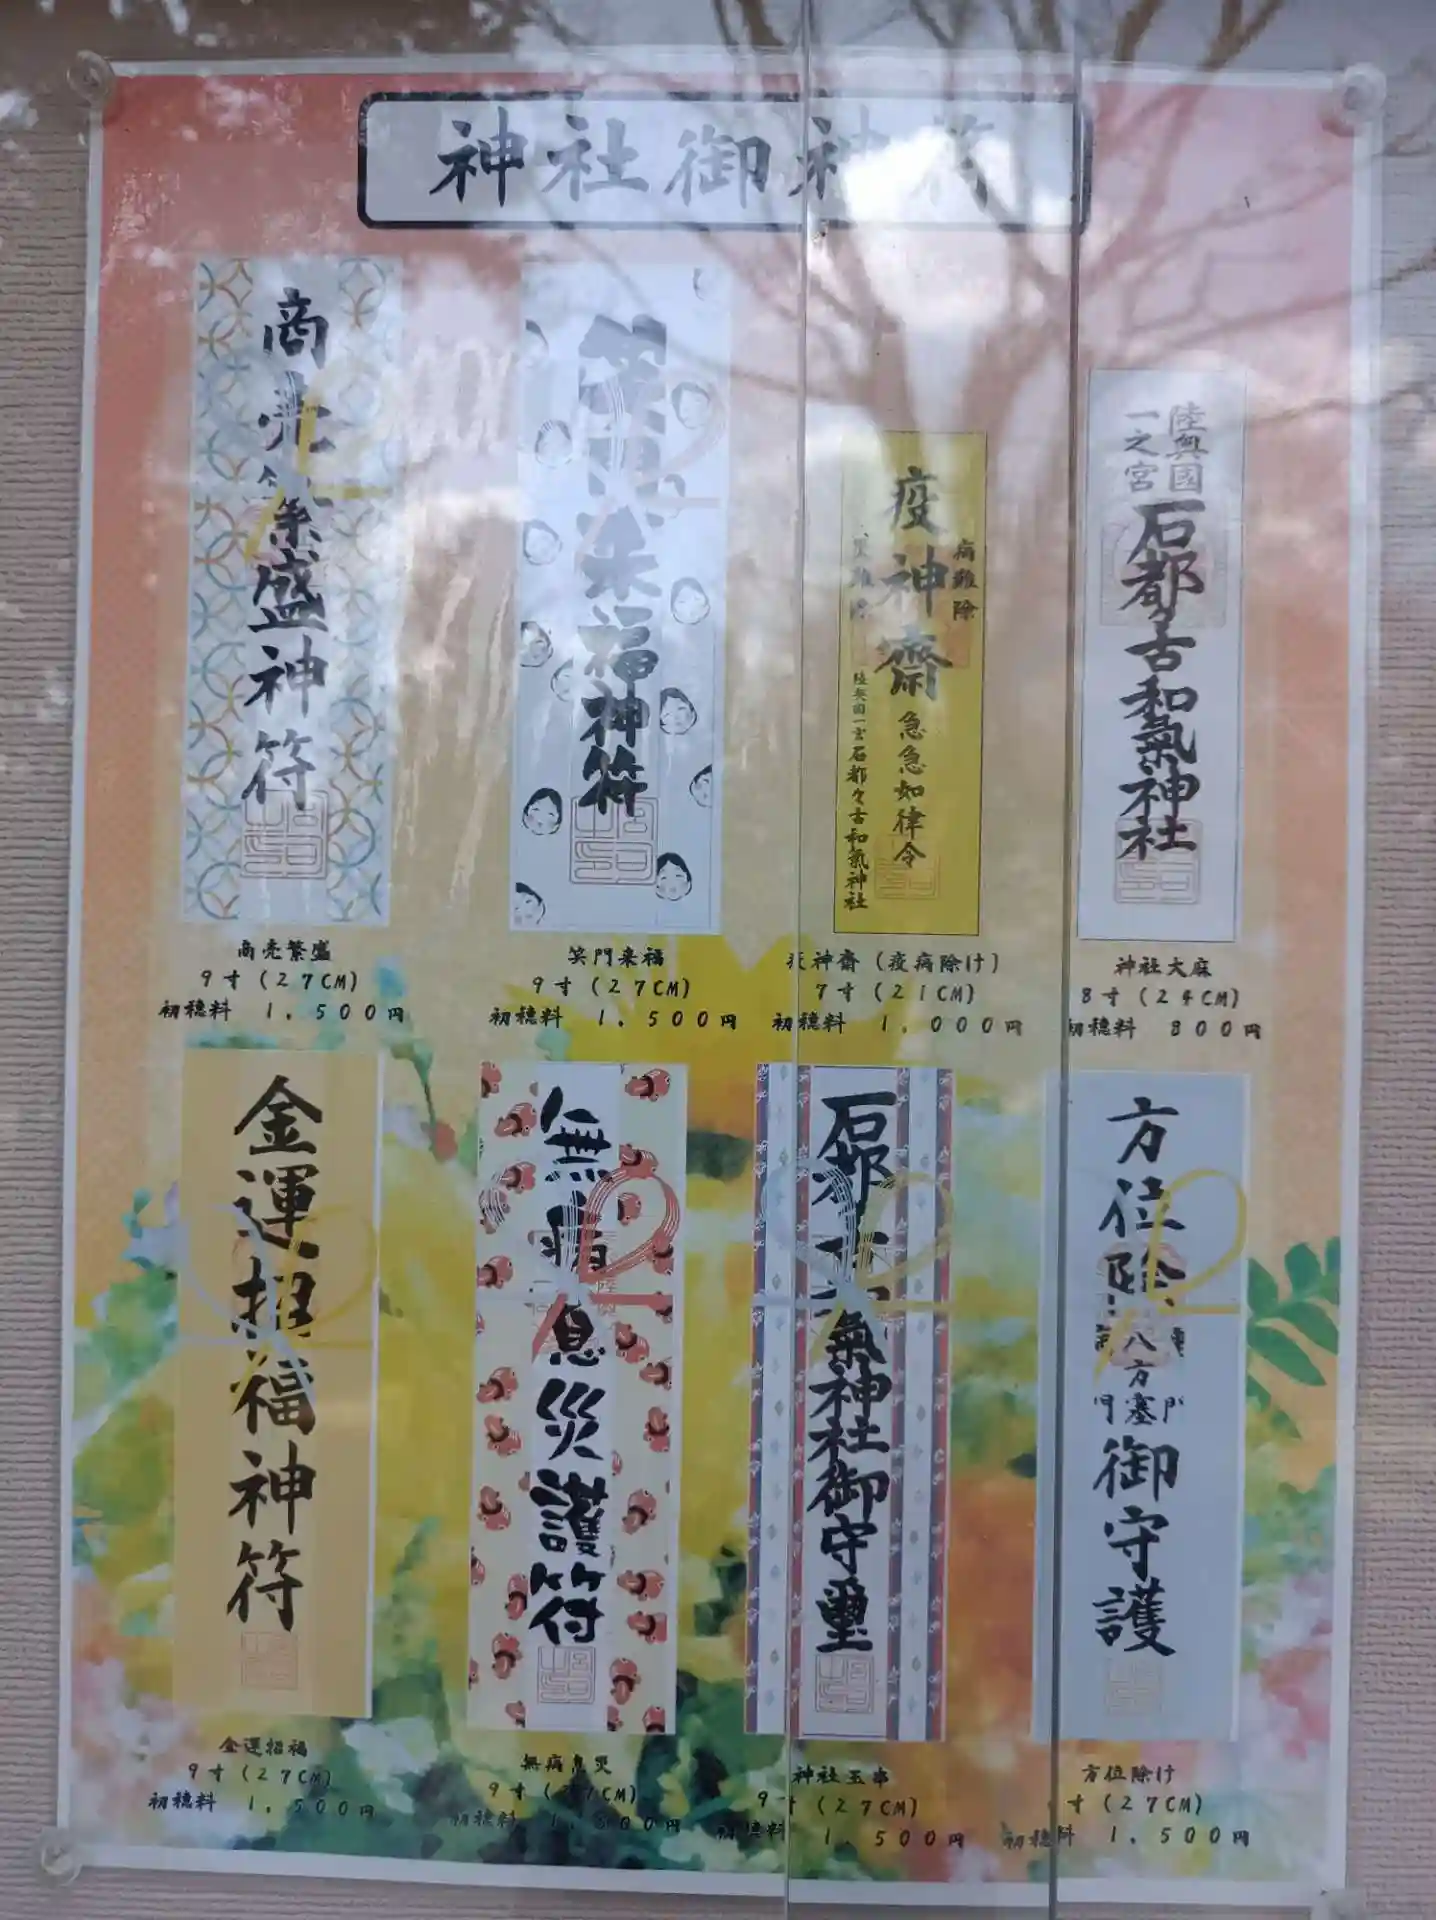 神社御神符
商売繁盛神符
笑門来福神符
疫神齋
病難除
災難除
急急如律令
陸奥国一宮石都々古和氣神社
陸奥國
一之宮
石都々古和氣神社
商売繁盛
9寸(27CM)
初穂料 1,500円
笑門来福
9寸(27CM)
初穂料 1,500円
疫神齋(疫病除け)
7寸(21CM)
初穂料 1,000円
神社大麻
8寸(24CM)
初穂料 800円
金運招福神符
無病息災護符
石都々古和氣神社御守璽
方位除
八方塞
御守護
金運招福
9寸(27CM)
初穂料 1,500円
無病息災
9寸(27CM)
初穂料 1,500円
神社玉串
9寸(27CM)
初穂料 1,500円
方位除け
寸(27CM)
初穂料 1,500円